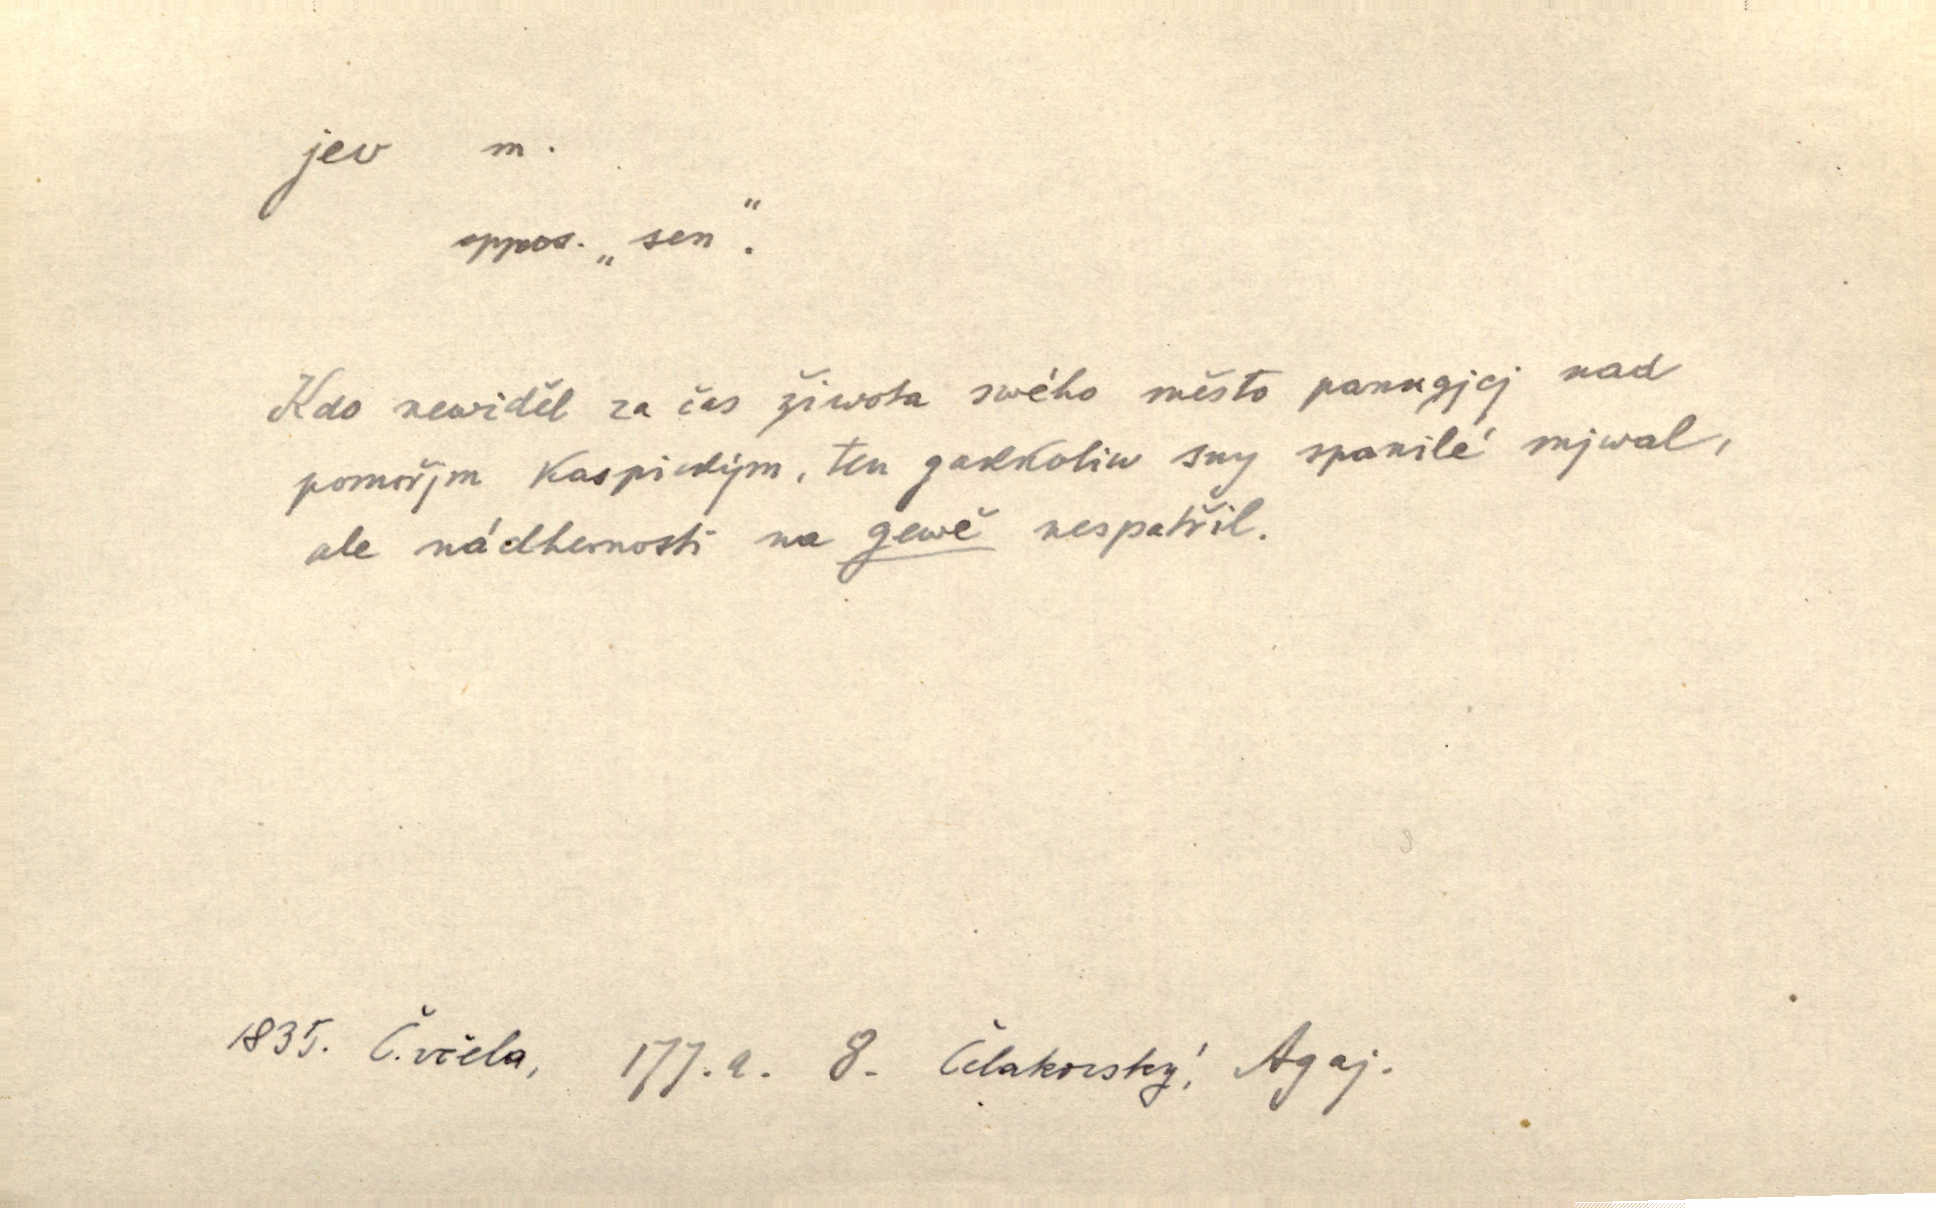 jev m.
oppos. „sen“.
Kdo newiděl za čas žiwota swého město panugjcj nad
pomořjm Kaspickým, ten gakkoliw sny spanilé mjwal,
ale nádhernosti na gewě nespatřil.
1835. Č.včela, 177.a. 8. Čelakovský, Agaj.